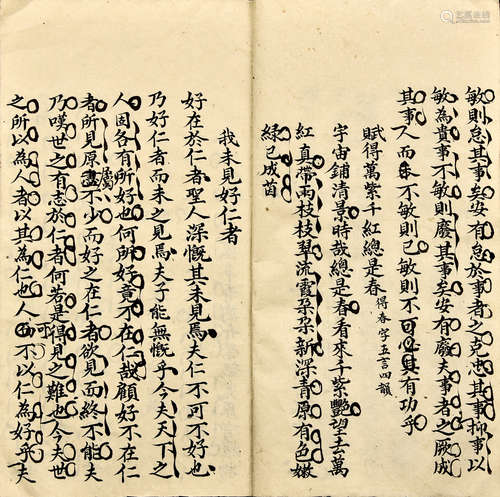 敏則怠其事矣安有怠於事者之克忠其事抑事以
敏為貴事不敏則廢其事矣安有廢夫事者之厥成
其事人而不敏則已敏則不可必其有功乎
賦得萬紫千紅總是春 得春字五言四韻
宇宙鋪清景時哉總是春看來千紫艷望去萬
紅真帶雨枝枝翠流霞朵朵新深青原有色嫩
綠已成茵
我未見好仁者
好在於仁者聖人深慨其未見焉夫仁不可不好也
乃好仁者而未之見焉夫子能無慨乎今夫天下之
人固各有所好也何所好竟不在仁哉顧好不在仁
者所見原屬不少而好之在仁者欲見而終不能夫
乃嘆世之有志於仁者何若是得見之難也今夫世
之所以為人者以其為仁也人可不以仁為好乎夫